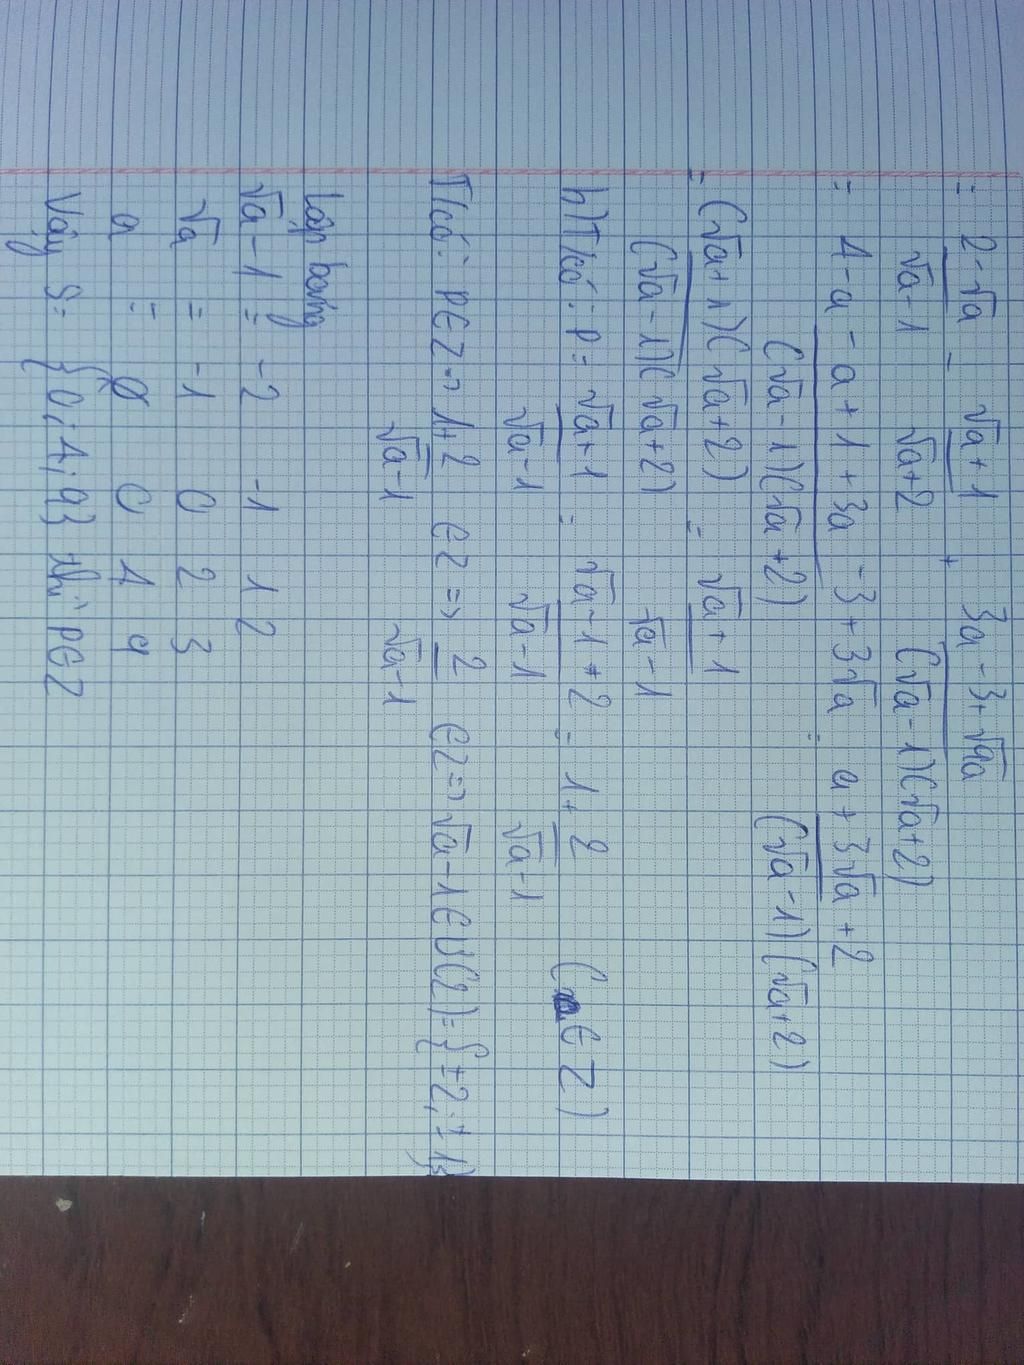 = 2-√a / √a-1 - √a+1 / √a+2 + 3a-3+√9a / (√a-1)(√a+2)
= 4-a-a+1+3a-3+3√a / (√a-1)(√a+2) = a+3√a+2 / (√a-1)(√a+2)
= (√a+1)(√a+2) / (√a-1)(√a+2) = √a+1 / √a-1
b) T/có: P = √a+1 / √a-1 = √a-1+2 / √a-1 = 1+ 2 / √a-1 (a∈Z)
T/có: P∈Z => 1+ 2 / √a-1 ∈Z => 2 / √a-1 ∈Z => √a-1∈U(2)={±2;±1}
Lập bảng
√a-1 = -2 -1 1 2
√a = -1 0 2 3
a = ∅ 0 4 9
Vậy S= {0;4;9} thì P∈Z